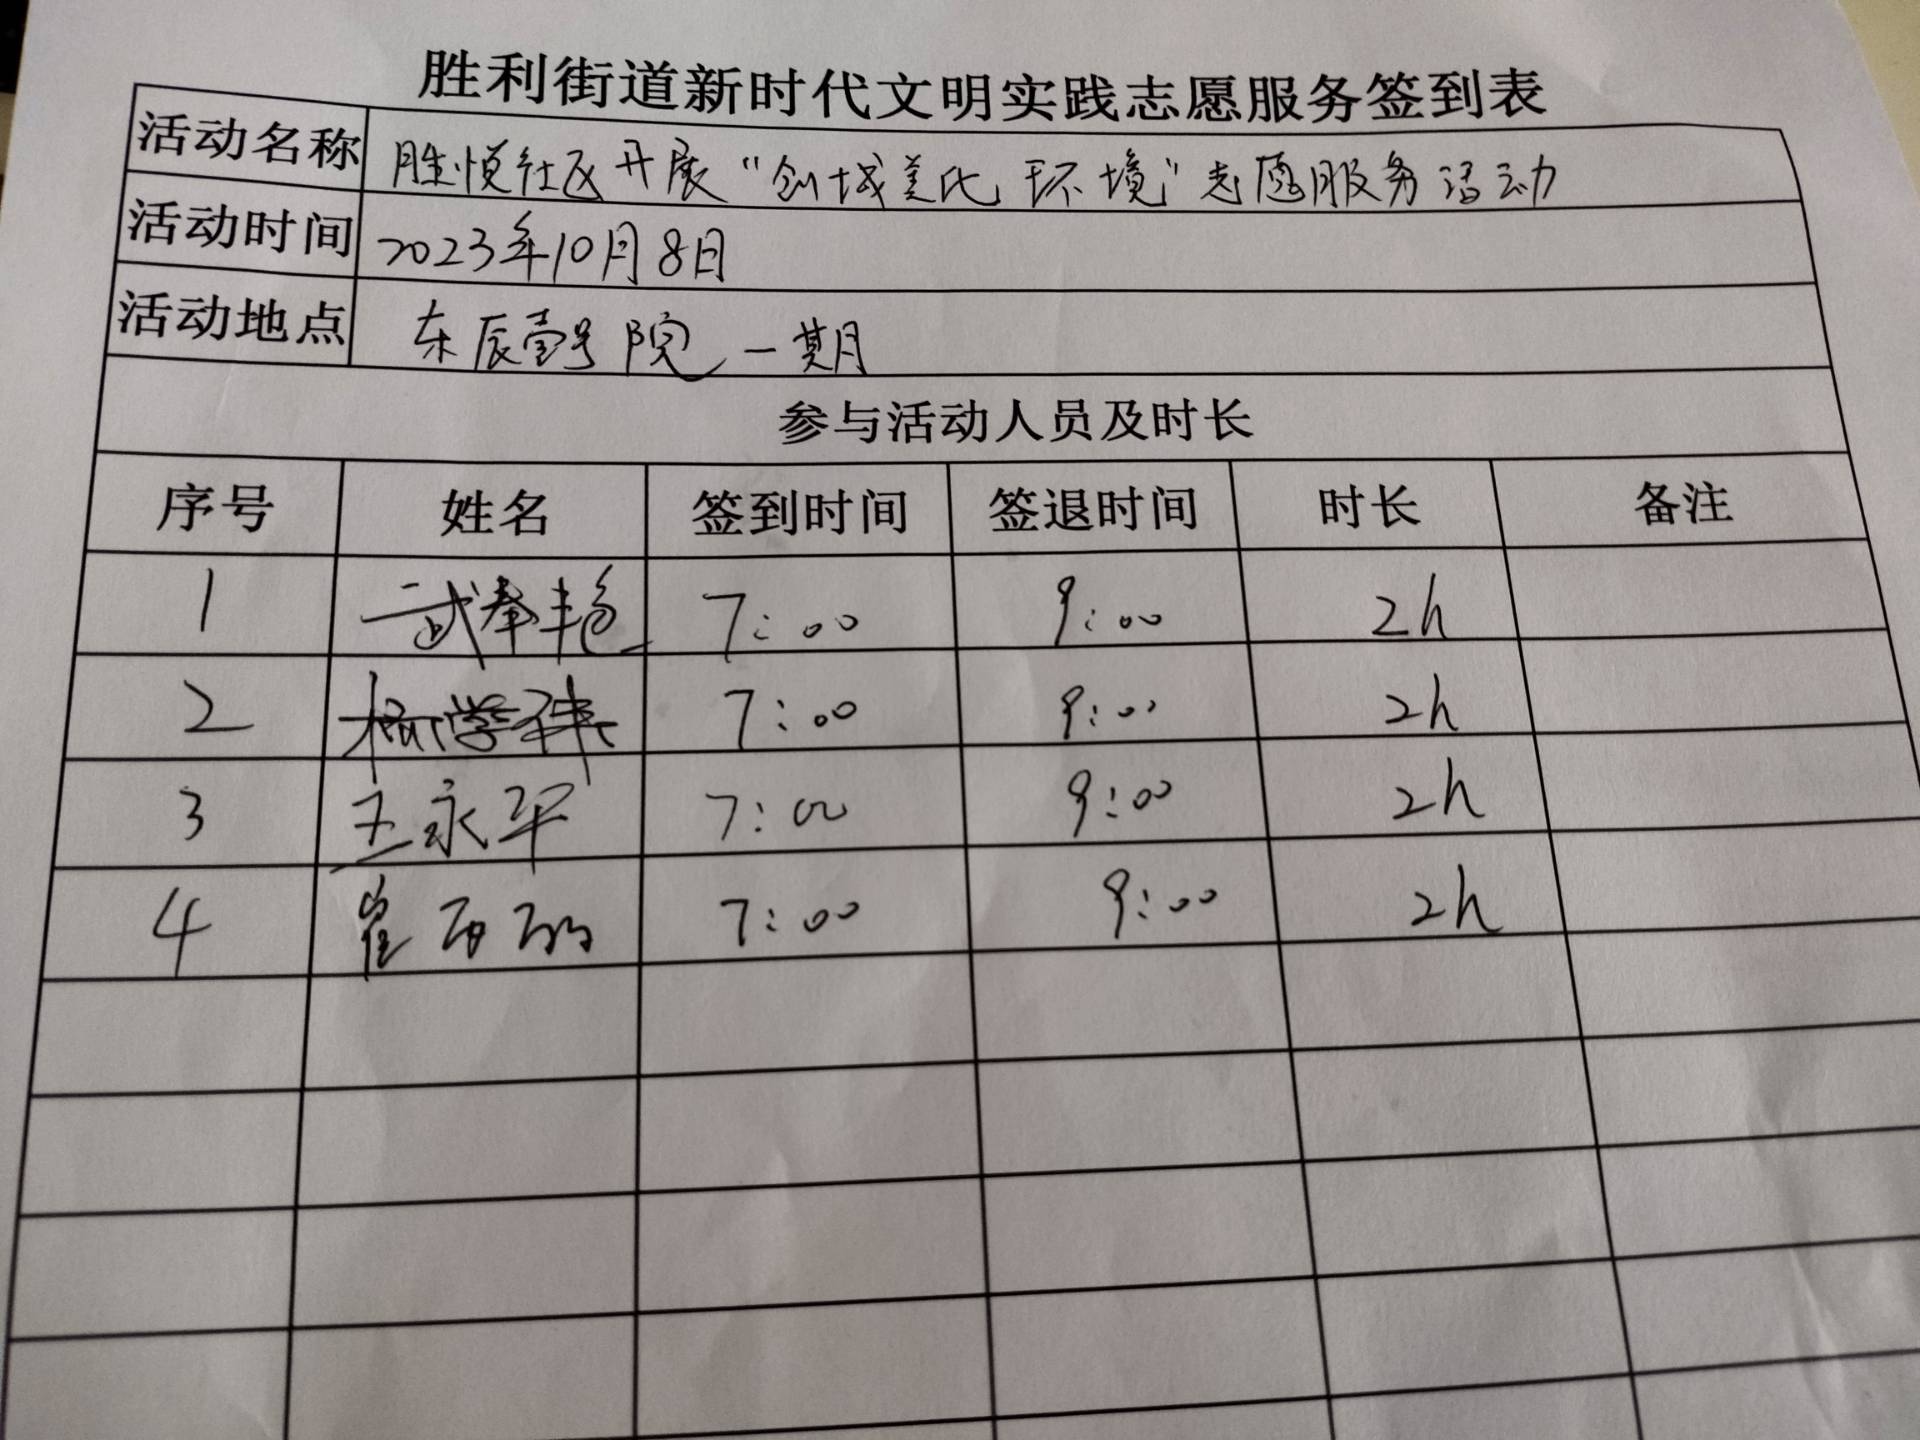 胜利街道新时代文明实践志愿服务签到表
活动名称 胜悦社区开展“创城美化环境”志愿服务活动
活动时间 2023年10月8日
活动地点 东辰壹号院一期
参与活动人员及时长
序号 姓名 签到时间 签退时间 时长 备注
1 武春艳 7:00 9:00 2h
2 杨学 7:00 9:00 2h
3 王永平 7:00 9:00 2h
4 崔丽丽 7:00 9:00 2h